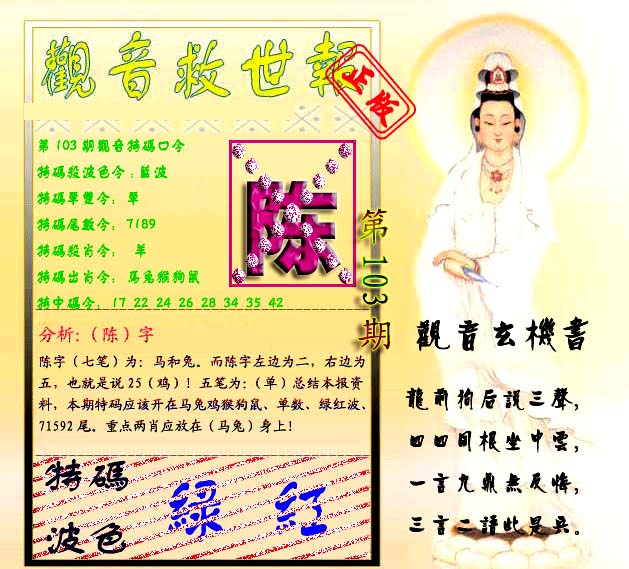 觀音救世報
正版
第 103 期觀音特碼口令
特碼殺波色令：藍波
特碼單雙令： 單
特碼尾數令： 7189
特碼殺肖令： 羊
特碼出肖令： 馬兔猴狗鼠
特中碼令： 17 22 24 26 28 34 35 42
陈
第103期
分析：（陈）字
陈字（七笔）为：马和兔。而陈字左边为二，右边为
五，也就是说 25（鸡）！五笔为：（单）总结本报资
料，本期特码应该开在马兔鸡猴狗鼠、单数、绿红波、
71592 尾。重点两肖应放在（马兔）身上！
特碼
波色
綠 紅
觀音玄機書
龍前狗后説三聲，
四四同根坐中雲，
一言九鼎無反悔，
三言二語此是具。